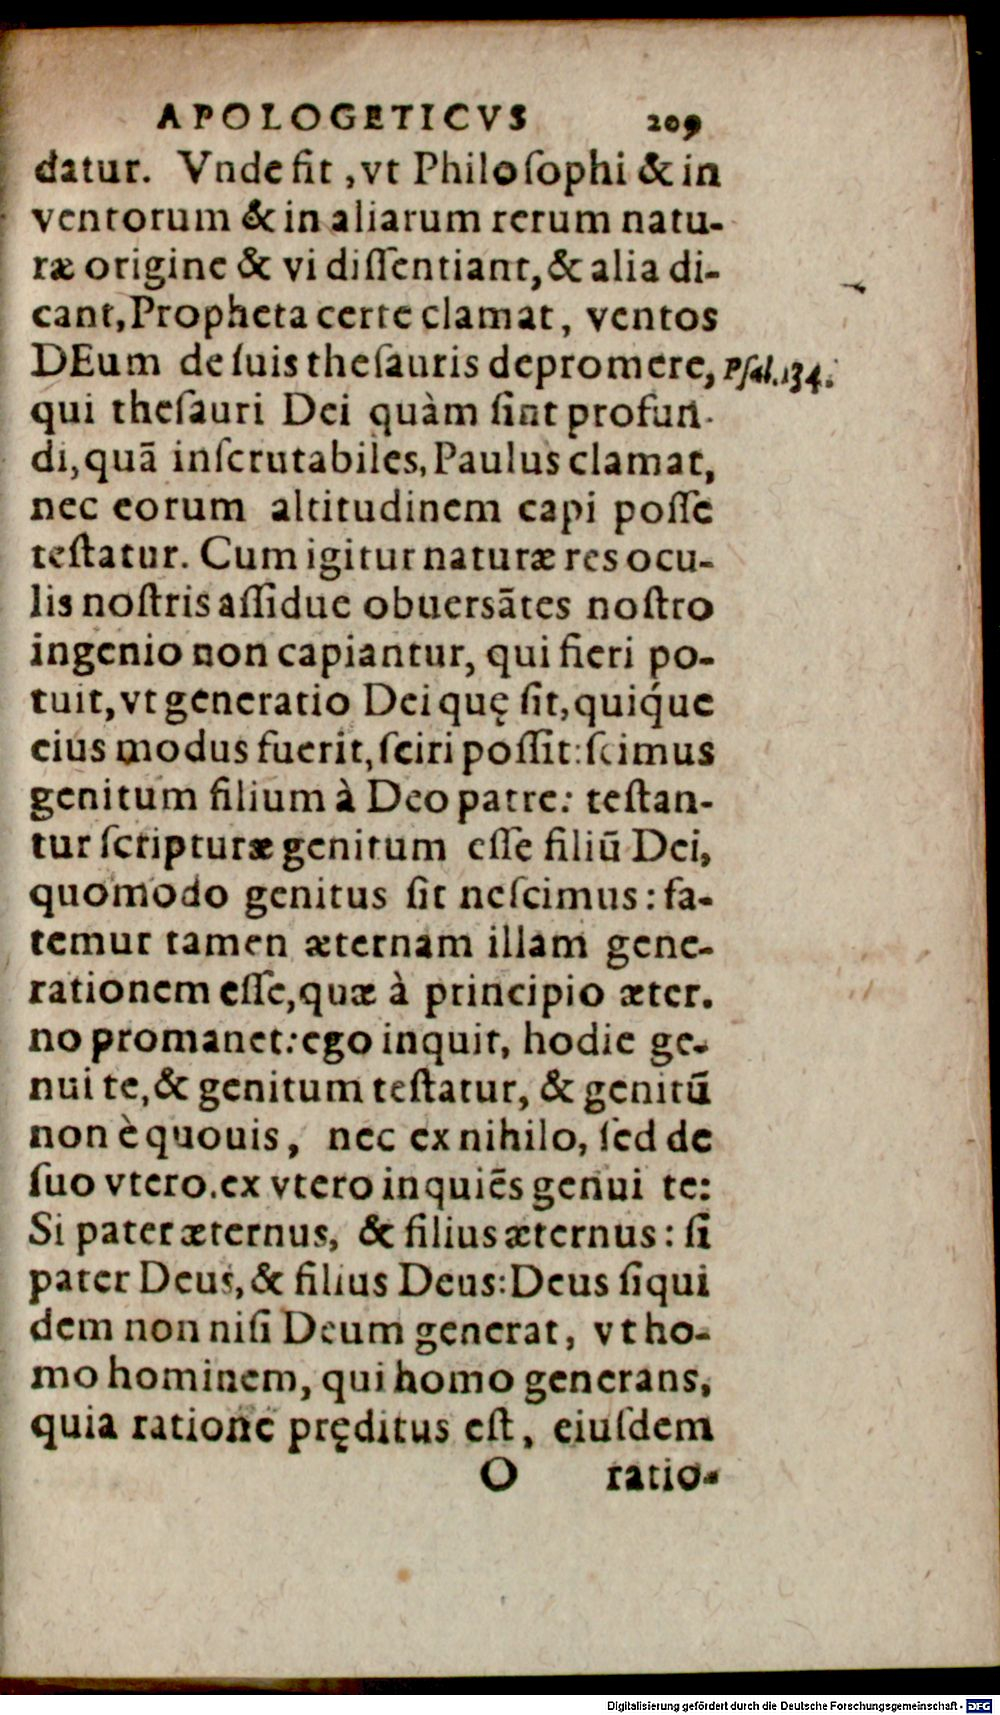 APOLOGETICVS 209
datur. Vnde fit, vt Philoſophi & in
ventorum & in aliarum rerum natu-
ræ origine & vi diſſentiant, & alia di-
cant, Propheta certe clamat, ventos
DEum de ſuis theſauris depromere, Pſal. 134.
qui theſauri Dei quàm ſint profun-
di, quã inſcrutabiles, Paulus clamat,
nec eorum altitudinem capi poſſe
teſtatur. Cum igitur naturæ res ocu-
lis noſtris aſſidue obuersãtes noſtro
ingenio non capiantur, qui fieri po-
tuit, vt generatio Dei quę ſit, quiq́ue
eius modus fuerit, ſciri poſſit: ſcimus
genitum filium à Deo patre: teſtan-
tur ſcripturæ genitum eſſe filiũ Dei,
quomodo genitus ſit neſcimus: fa-
temur tamen æternam illam gene-
rationem eſſe, quæ à principio æter-
no promanet: ego inquit, hodie ge-
nui te, & genitum teſtatur, & genitũ
non è quouis, nec ex nihilo, ſed de
ſuo vtero. ex vtero inquiẽs genui te:
Si pater æternus, & filius æternus: ſi
pater Deus, & filius Deus: Deus ſiqui
dem non niſi Deum generat, vt ho-
mo hominem, qui homo generans,
quia ratione pręditus eſt, eiuſdem
O ratio-
Digitalisierung gefördert durch die Deutsche Forschungsgemeinschaft - DFG